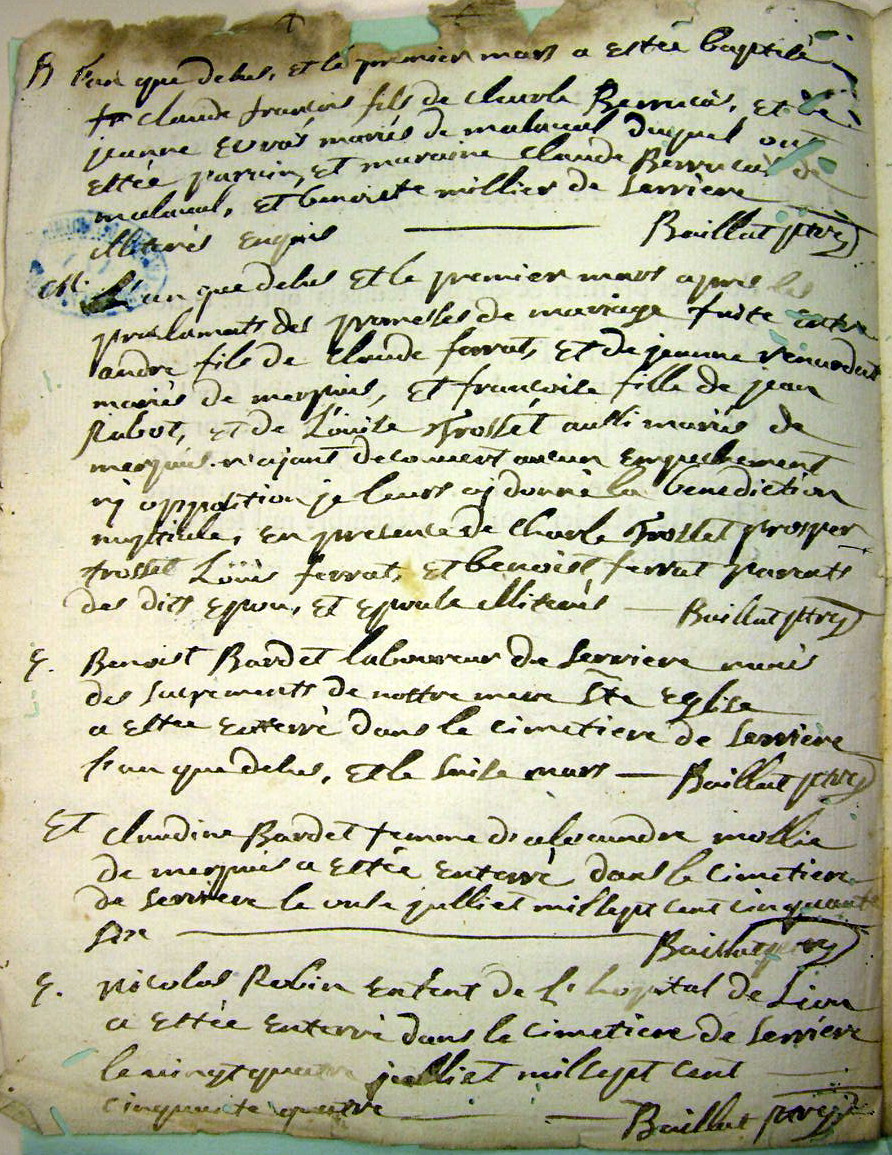 B L'an que debus, et le premier mars a estée baptisé
claude françois fils de claude Berrucas, et de
jeanne mariés de malaval duquel ont
estée parrain, et maraine claude Berrucas de
malaval, et benoiste millier de Serriere
illiterés enquis Baillat ptre
M. L'an que debus et le premier mars apres les
proclamats des promesses de mariage faite entre
andre fils de claude ferrat, et de jeanne
mariés de merpuis, et françoise fille de jean
Rabot, et de Loüise Trosset aussi mariés de
merpuis n'ajant decouvert aucun empechement
nj opposition je leurs aj donné la benediction
nuptiale, en presence de charle Trosset prosper
trosset Loüis ferrat, et benoist ferrat parents
des dits epou, et epouse illiterés Baillat ptre
E. Benoist Bardet laboureur de Serriere muni
des sacrements de nottre mere Ste Eglise
a estée enterré dans le cimetiere de Serriere
l'an que debus, et le saise mars Baillat ptre
Et claudine Bardet femme d'alexandre mollie
de merpuis a estée enterré dans le cimetiere
de Serriere le onse julliet mil sept cent cinquante
Baillat ptre
E. nicolas Robin enfent de l'hopital de Lion
a estée enterré dans le cimetiere de Serriere
le vingt quatre julliet mil sept cent
cinquante quatre Baillat ptre